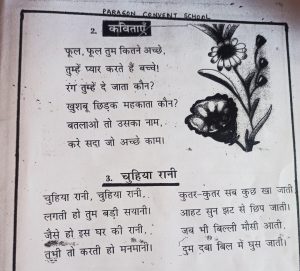 PARAGON CONVENT SCHOOL
2. कविताएँ
फूल, फूल तुम कितने अच्छे,
तुम्हें प्यार करते हैं बच्चे!
रंग तुम्हें दे जाता कौन?
खुशबू छिड़क महकाता कौन?
बतलाओ तो उसका नाम,
करे सदा जो अच्छे काम।
3. चुहिया रानी
चुहिया रानी, चुहिया रानी,
लगती हो तुम बड़ी सयानी।
जैसे हो इस घर की रानी,
तुभी तो करती हो मनमानी।
कुतर-कुतर सब कुछ खा जाती
आहट सुन झट से छिप जाती।
जब भी बिल्ली मौसी आती,
दुम दबा बिल में घुस जाती।